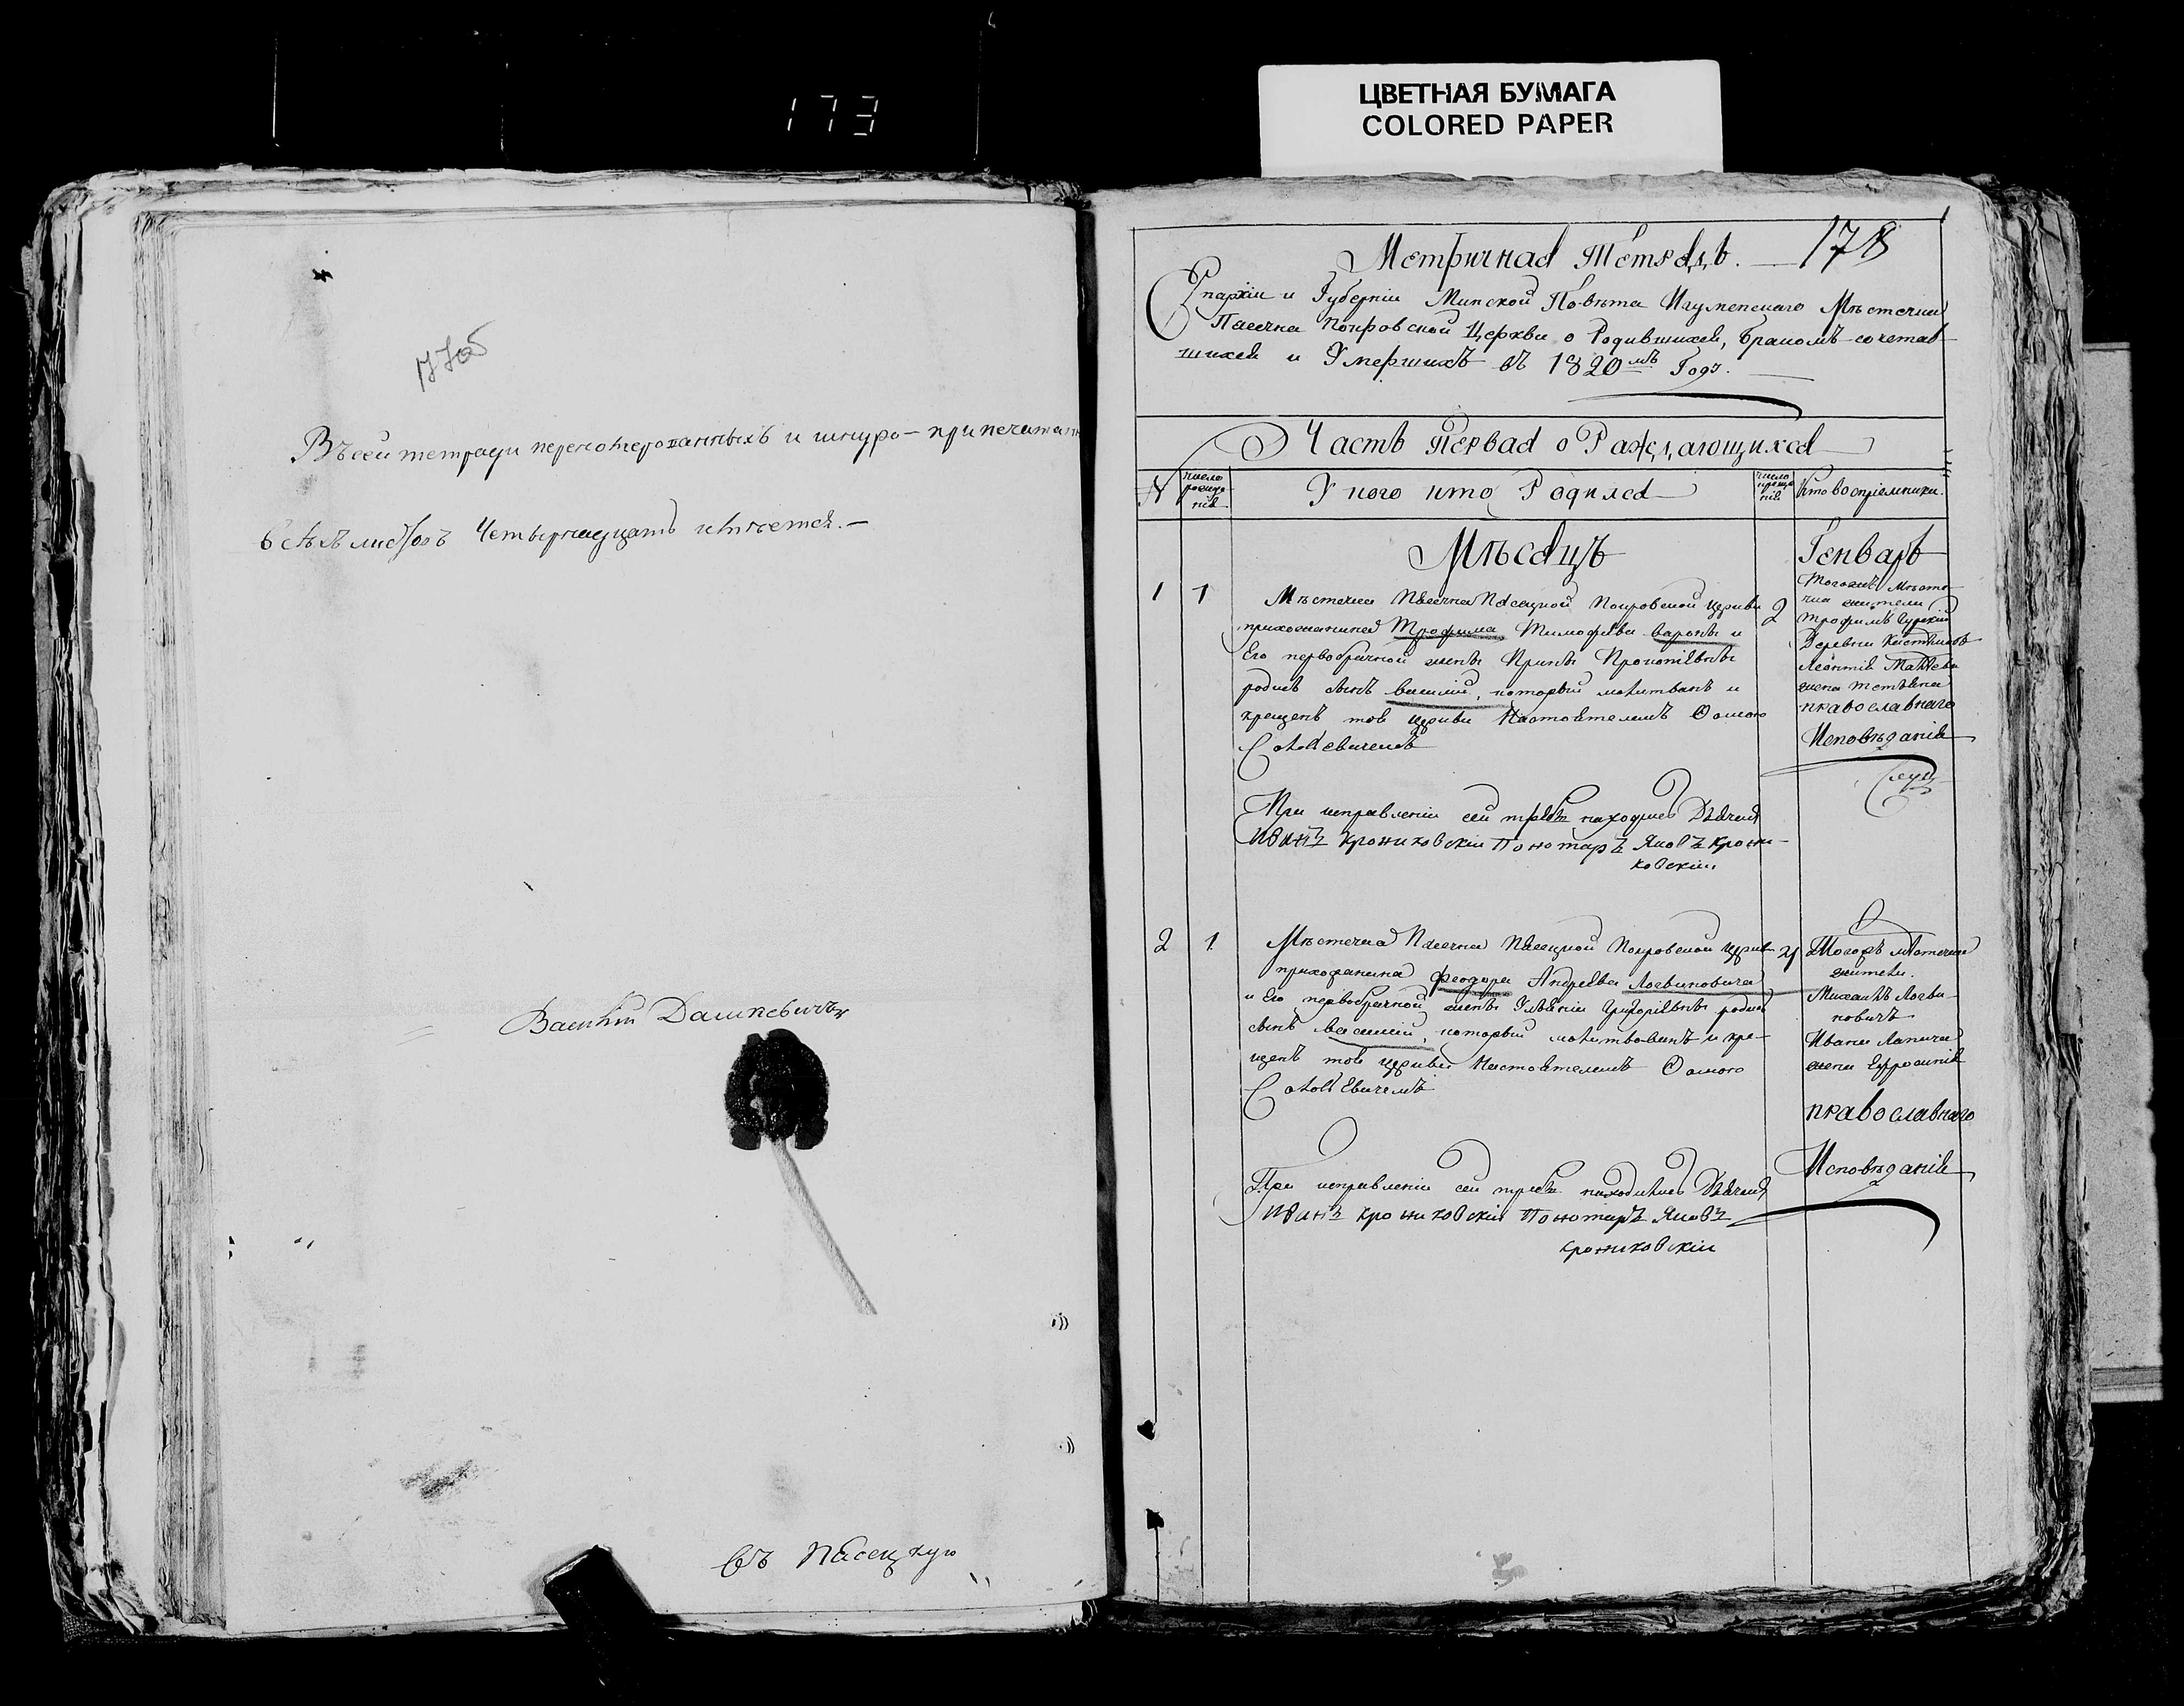 173
ЦВЕТНАЯ БУМАГА
COLORED PAPER
177об
Въ сей тетради перенотерованныхъ и шнуро-припечатан
всѣхъ листовъ Четырнадцать имѣется.—
Василій Дашкевичъ
Въ Пасецкую
Метричная Тетрадь. — 178
Епархіи и Губерніи Минской Повѣта Игуменскаго Мѣстечка
Пасечна Покровской Церкви о Родившихся, бракомъ сочетав
шихся и Умершихъ въ 1820мъ Годꙋ.
Часть Первая о Раждающихся
№ число рожде нія У кого кто Родился число креще нія Кто воспріемники.
Мѣсяцъ Генварь
1 1 Мѣстечка Пасечна Пасецкой Покровской Церкви 2
прихожанина Трофима Тимофѣева вароны и
Его первобрачной жены Ирины Прокопіевны
родися сынъ василій, который молитванъ и
крещенъ той церкви Настоятелемъ Фомою
При исправленіи сей требы находися Дьячокъ
Иванъ Крониковскій Пономаръ Яковъ Крони-
ковскій.
Тогожъ Мѣсте-
чка жители
Трофимъ
Деревни
Леонтія Матѣева
жена Тетяна
православнаго
Исповѣданія
2 1 Мѣстечка Пасечна Пасецкой Покровской Церкви 2
прихожанина Феодора Андреева Логвиновича
и Его первобрачной жены Уліяніи Григоріевны родися
сынъ василій, который молитвованъ и кре-
щенъ той церкви Настоятелемъ Фомою
При исправленіи сей требы находились Дьячокъ
Иванъ Крониковскій Пономаръ Яковъ
Крониковскій
Тогожъ мѣстечка
жители.
Михаилъ Логви-
новичъ
Ивана Лапича
жена Ефросинія
православнаго
Исповѣданія